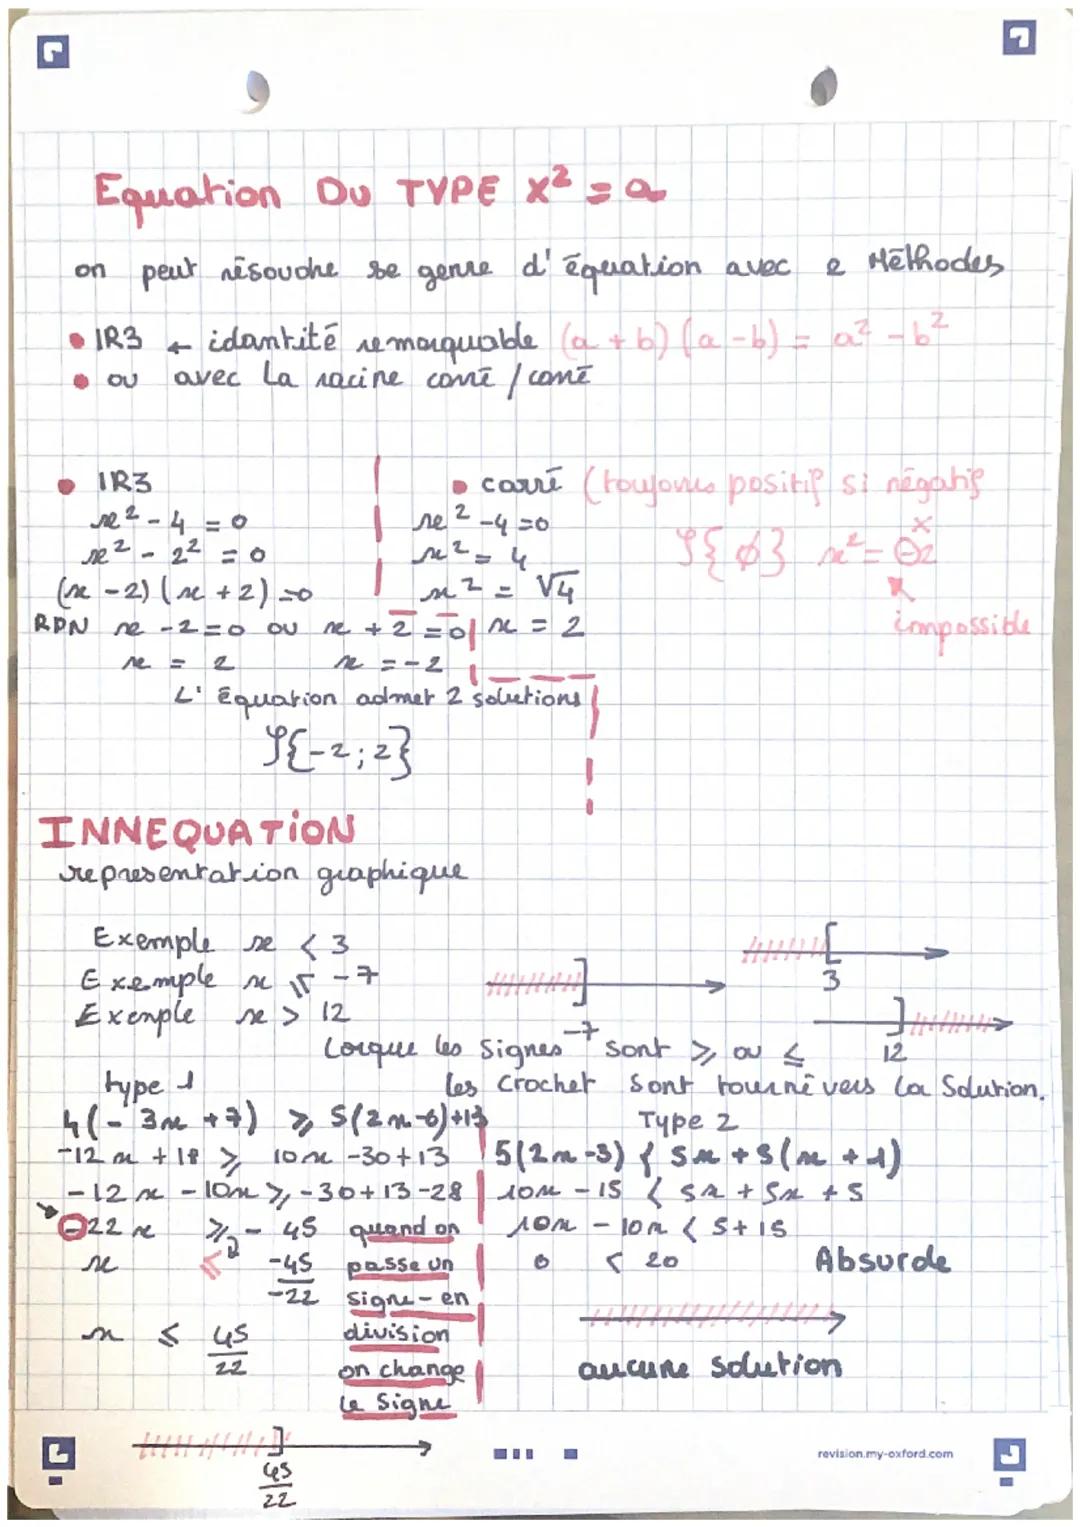 Equation DU TYPE x² = a
on peut résoudre se genre d'équation avec 2 Méthodes
• IR3 ← idantité remarquable (a + b) (a - b) = a² - b²
• ou avec la racine carré / carré
• IR3
x² - 4 = 0
x² - 2² = 0
(x - 2) (x + 2) = 0
RPN x - 2 = 0 ou x + 2 = 0
x = 2 x = -2
L'équation admet 2 solutions
S{-2 ; 2}
• carré (toujours positif si négatif
x² - 4 = 0
x² = 4
x² = √4
x = 2
S{∅} x² = -2
x
impossible
INNEQUATION
representation graphique
Exemple x < 3
3
Exemple x ⩽ -7
-7
Exemple x > 12
12
Lorque les signes sont ⩾ ou ⩽
les crochet sont tourné vers la solution.
type 1
4(-3x + 7) ⩾ 5(2x-6)+13
-12x + 18 ⩾ 10x - 30 + 13
-12x - 10x ⩾ -30 + 13 - 28
-22x ⩾ - 45
x ⩽ -45/-22
x ⩽ 45/22
quand on
passe un
signe - en
division
on change
le signe
45/22
Type 2
5(2x-3) < 5x + 5(x + 1)
10x - 15 < 5x + 5x + 5
10x - 10x < 5 + 15
0 < 20 Absurde
aucune solution
revision.my-oxford.com